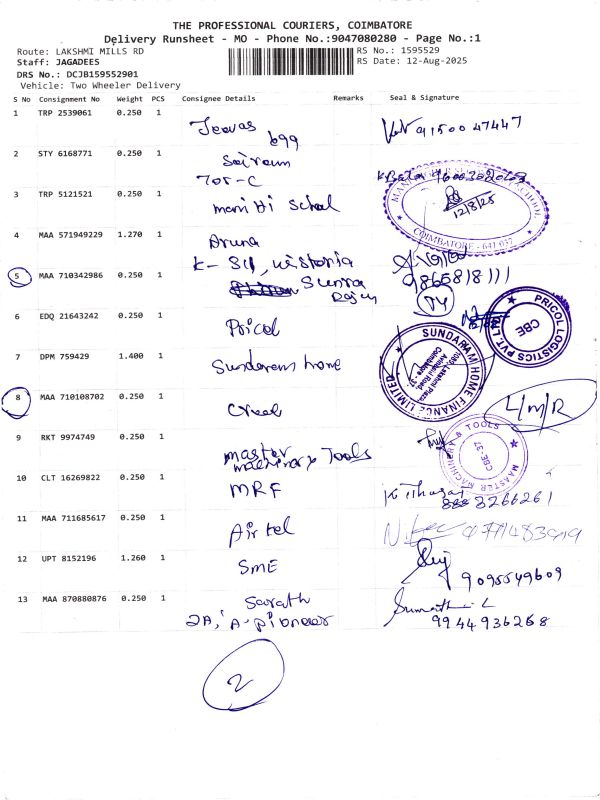 THE PROFESSIONAL COURIERS, COIMBATORE
Delivery Runsheet - MO - Phone No.:9047080280 - Page No.:1
Route: LAKSHMI MILLS RD
RS No.: 1595529
Staff: JAGADEES
RS Date: 12-Aug-2025
DRS No.: DCJB159552901
Vehicle: Two Wheeler Delivery
S No Consignment No Weight PCS Consignee Details Remarks Seal & Signature
1 TRP 2539061 0.250 1 Jeevas 91500 47447
699
2 STY 6168771 0.250 1 Sairam
701-C
3 TRP 5121521 0.250 1 School
12/8/25
COIMBATORE - 641 037
4 MAA 571949229 1.270 1 Aruna
5 MAA 710342986 0.250 1 9865818111
6 EDQ 21643242 0.250 1 Pricol
PRICOL LOGISTICS PVT. LTD
CBE
7 DPM 759429 1.400 1 Sundaram home
SUNDARAM HOME FINANCE LIMITED
8 MAA 710108702 0.250 1
9 RKT 9974749 0.250 1 master
machinary Tools
MASTER MACHINERY & TOOLS
CBE 37
10 CLT 16269822 0.250 1 MRF
11 MAA 711685617 0.250 1 Airtel
12 UPT 8152196 1.260 1 SME
9095549609
13 MAA 870880876 0.250 1 Sarath
2A, A-pioneer 9944936268
2